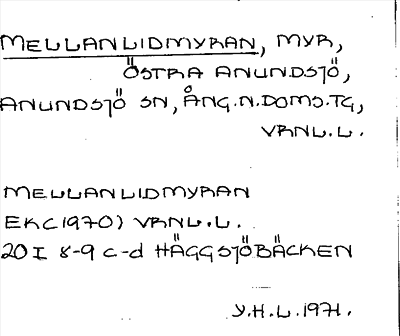 MELLANLIDMYRAN, MYR,
ÖSTRA ANUNDSJÖ,
ANUNDSJÖ SN, ÅNG.N.DOMS.TG,
VRNL.L.
MELLANLIDMYRAN
EK(1970) VRNL.L.
20 I 8-9 c-d HÄGGSJÖBÄCKEN
Y.H.L. 1971.